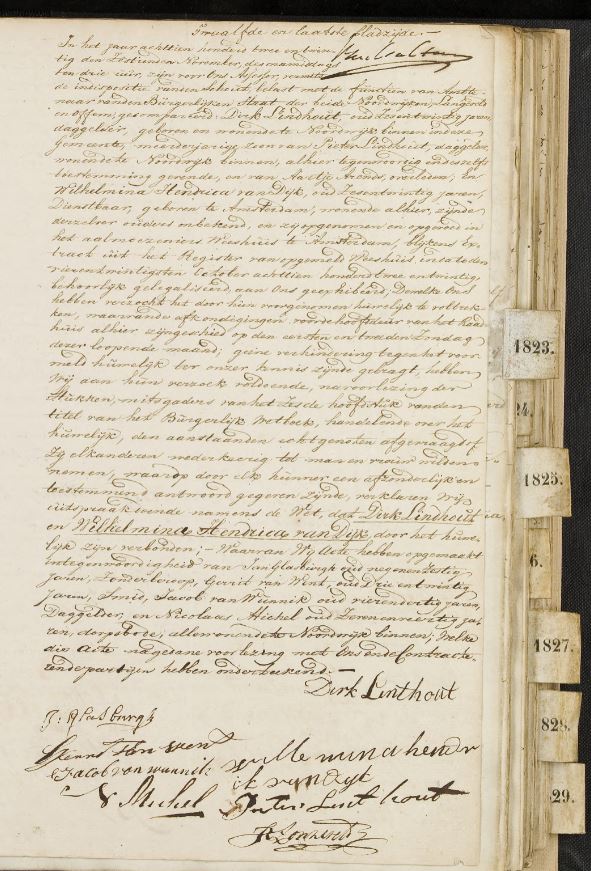 Twaalfde en laatste bladzijde.—
In het jaar achttien honderd twee en twin-
tig den Zestienden November, des namiddags
ten drie uur, zijn voor Ons Assessor, vermits
de indispositie van den Schout, belast met de functien van Ambte-
naar van den Burgerlijken Staat der beide Noordwijken, Langeveld
en Offem; gecompareerd: Dirk Lindhout, oud Zesentwintig jaren,
daggelder, geboren en wonende te Noordwijk binnen in deze
Gemeente, meerderjarige zoon van Pieter Lindhout, daggelder,
wonende te Noordwijk binnen, alhier tegenwoordig en deszelfs
toestemming gevende, en van Aaltje Arends, overleden; En
Wilhelmina Hendrica van Dijk, oud Zesentwintig jaren,
Dienstbaar, geboren te Amsterdam, wonende alhier, zijnde
derzelver ouders onbekend, en zij opgenomen en opgevoed in
het aalmoezeniers Weeshuis te Amsterdam, blijkens Ex-
tract uit het Register van opgemeld Weeshuis in dato den
vierentwintigsten October achttien honderd twee en twintig,
behoorlijk gelegaliseerd, aan Ons geexhibeerd; Dewelke Ons
hebben verzocht het door hun voorgenomen huwelijk te voltrek-
ken, waarvan de afkondigingen voor de hoofddeur van het Raad-
huis alhier zijn geschied op den eersten en tweeden Zondag
dezer loopende maand; geene verhindering tegen het voor-
meld huwelijk ter onzer kennis zijnde gebragt, hebben
Wij aan hun verzoek voldoende, na voorlezing der
Stukken, mitsgaders van het zesde hoofdstuk van den
titel van het Burgerlijk Wetboek, handelende over het
huwelijk, den aanstaanden echtgenoten afgevraagd of
Zij elkanderen wederkeerig tot man en vrouw wilden
nemen, waarop door elk hunner een afzonderlijk en
toestemmend antwoord gegeven zijnde, verklaren Wij
uitspraak doende namens de Wet, dat Dirk Lindhout
en Wilhelmina Hendrica van Dijk, door het huwe-
lijk zijn verbonden;— Waarvan Wij Acte hebben opgemaakt
in tegenwoordigheid van Jan Glasburgh oud negenenzestig
jaren, Gerrit van Went, oud Drie en twintig
jaren, Smid, Jacob van Wunnik oud vierendertig jaren,
Daggelder, en Nicolaas Michel oud Zevenenveertig ja-
ren, dorpsbode, allen wonende te Noordwijk binnen; Welke
die Acte na gedane voorlezing met Ons en de Contracte-
rende partijen hebben onderteekend.—
Dirk Linthout
J: Glasburgh
Gerrit Van Went
Wille mina hendr
Jacob van wunnik
ik van Dyk
N Michel
Pieter Lint hout
1823.
24.
1825.
6.
1827.
828.
29.